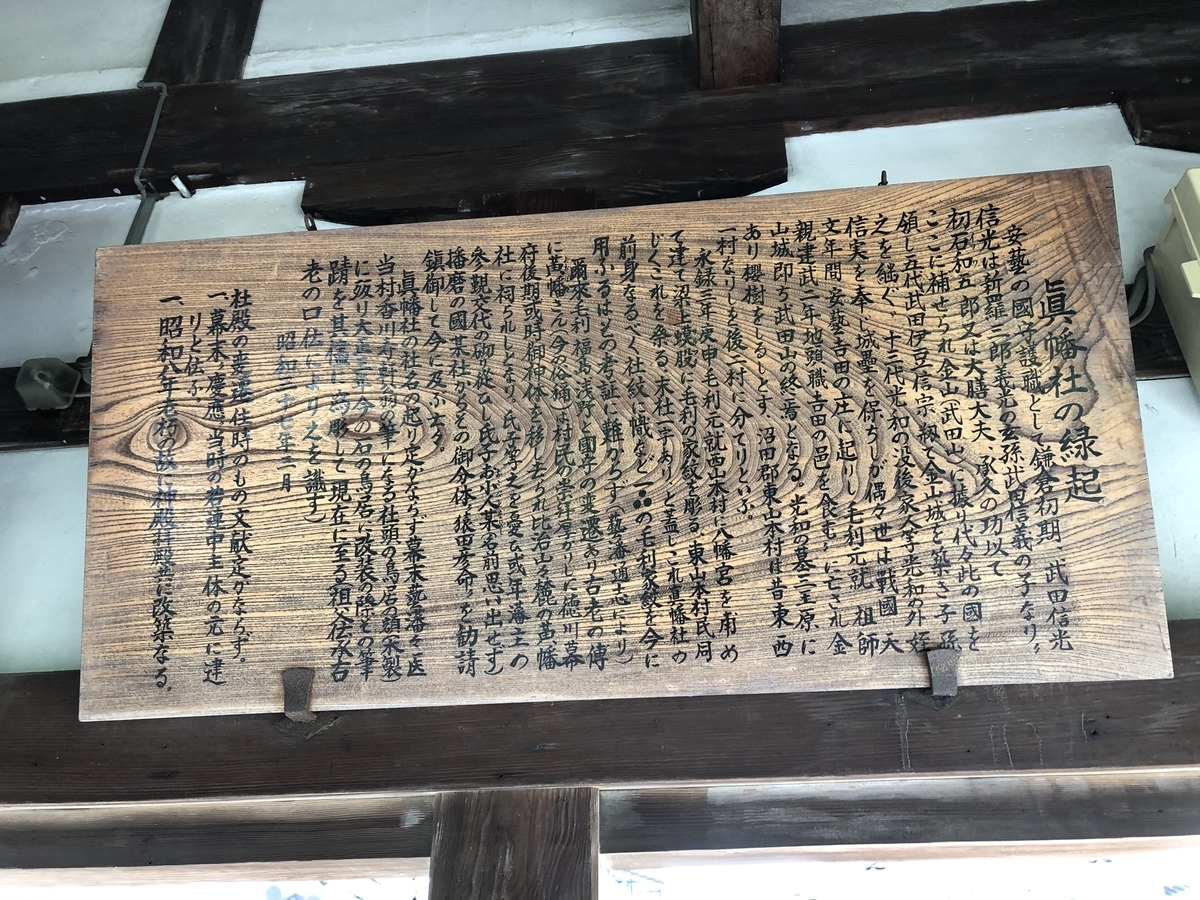 眞幡社の縁起
安藝の國守護職として鎌倉初期、武田信光
信光は新羅三郎義光の玄孫武田信義の子なり。
初石和五郎又は大膳大夫、承久の功以て
ここに補せられ金山武田山に據り代々此の國を
領し五代武田伊豆信宗初て金山城を築き子孫
之を継ぐ、十三代光和の没後家全字光和の外姪
信実を奉し城壘を保ちしが偶々世は戰國天
文年間安藝吉田の庄に起りし毛利元就祖師
親建武二年地頭職吉田の邑を食むに亡され金
山城即ち武田山の終焉となる。光和の墓三王原に
あり櫻樹をしるしとす 沼田郡東山本村は昔東西
一村なりしを後二村に分てりといふ。
永録三年庚申毛利元就西山本村八幡宮を南め
て建て沼田 に毛利の家紋を彫る 東山本村民同
じくこれを祭る 末社一宇ありと蓋しこれ眞幡社の
前身なるべく社紋に幟など の毛利家紋を今に
用ふるはその考証に難からず(藝藩通志より)
爾来毛利福島浅野と國守の変遷あり古老の傳
に萬幡さん今の谷桶 村民の崇拝厚かりしに徳川幕
府後期或時御神体を移し去られ比治山の麓の 幡
社に祠られしとなり、氏子等之を憂ひ或年藩主の
参覲交代の砌 従ひし氏子が小 (名前思い出せず)
播磨の國某社かりその御分体(猿田彦命)を勧請
鎮御して今に及ぶ云々。
眞幡社の社名の起り定かならず幕末藝藩 医
当村香川 軒翁の筆になる社頭の鳥居の額(木製)
に 大正三年今の石の鳥居に改装の際その筆
蹟を其儘 に彫して現在に至る(祖父伝承古
老の口伝により之を識す)
昭和三十七年二月
社殿の変遷往時のもの文献定かならず。
一、幕末、慶應、当時の若連中主体の元に建
りと伝ふ
一、昭和八年老朽の故に神殿拝殿共に改築なる。